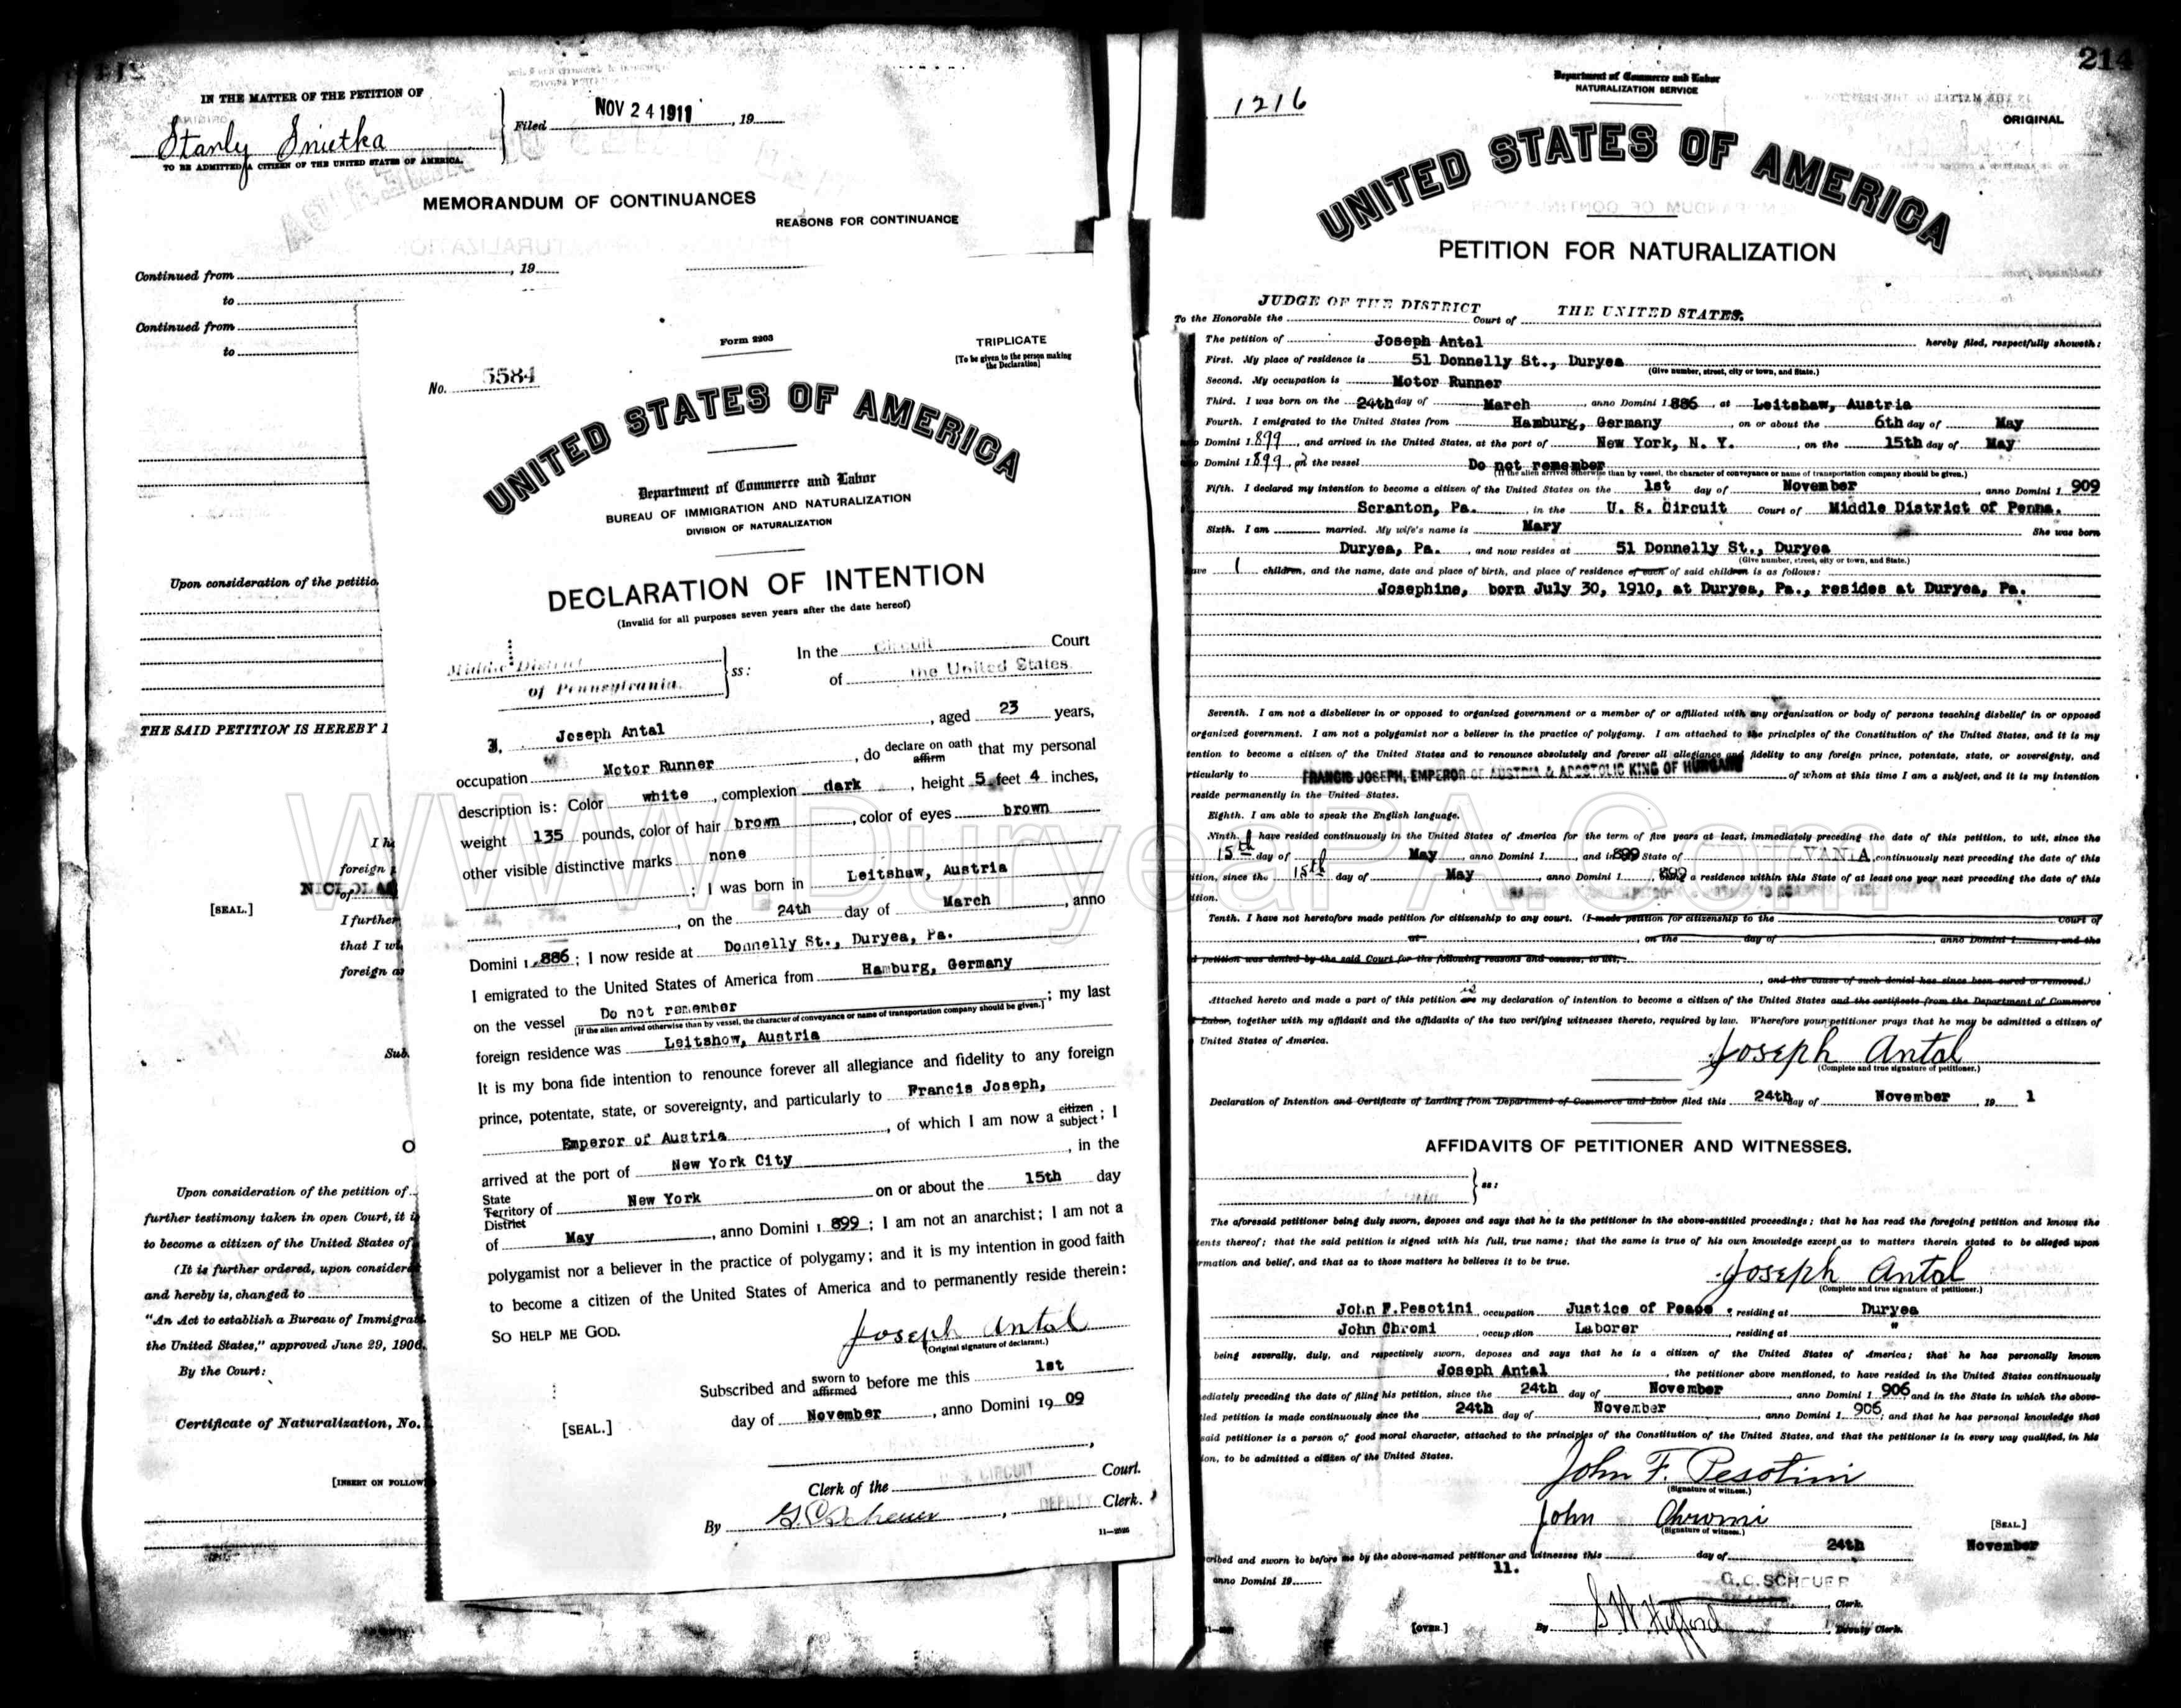 IN THE MATTER OF THE PETITION OF
Stanly Snietka
TO BE ADMITTED A CITIZEN OF THE UNITED STATES OF AMERICA.
Filed NOV 24 1911, 19
MEMORANDUM OF CONTINUANCES
REASONS FOR CONTINUANCE
Continued from , 19
to
Continued from
to
Upon consideration of the petitio
THE SAID PETITION IS HEREBY
I h
foreign
NICHOLAS
of
[SEAL.]
I further
that I w
foreign a
Sub
O
Upon consideration of the petition of
further testimony taken in open Court, it i
to become a citizen of the United States of
(It is further ordered, upon consider
and hereby is, changed to
"An Act to establish a Bureau of Immigra
the United States," approved June 29, 1906.
By the Court:
Certificate of Naturalization, No.
[INSERT ON FOLLOW
Form 2203
TRIPLICATE
[To be given to the person making
the Declaration]
No. 5584
UNITED STATES OF AMERICA
Department of Commerce and Labor
BUREAU OF IMMIGRATION AND NATURALIZATION
DIVISION OF NATURALIZATION
DECLARATION OF INTENTION
(Invalid for all purposes seven years after the date hereof)
Middle District
of Pennsylvania. ss:
In the Circuit Court
of the United States.
I, Joseph Antal, aged 23 years,
occupation Motor Runner, do declare on oath affirm that my personal
description is: Color white, complexion dark, height 5 feet 4 inches,
weight 135 pounds, color of hair brown, color of eyes brown
other visible distinctive marks none
; I was born in Leitshaw, Austria
, on the 24th day of March, anno
Domini 1 886; I now reside at Donnelly St., Duryea, Pa.
I emigrated to the United States of America from Hamburg, Germany
on the vessel Do not remember; my last
[If the alien arrived otherwise than by vessel, the character of conveyance or name of transportation company should be given.]
foreign residence was Leitshow, Austria
It is my bona fide intention to renounce forever all allegiance and fidelity to any foreign
prince, potentate, state, or sovereignty, and particularly to Francis Joseph,
Emperor of Austria, of which I am now a citizen subject; I
arrived at the port of New York City, in the
State Territory District of New York on or about the 15th day
of May, anno Domini 1 899; I am not an anarchist; I am not a
polygamist nor a believer in the practice of polygamy; and it is my intention in good faith
to become a citizen of the United States of America and to permanently reside therein:
SO HELP ME GOD.
Joseph Antal
(Original signature of declarant.)
Subscribed and sworn to affirmed before me this 1st
[SEAL.]
day of November, anno Domini 19 09
Clerk of the U. S. CIRCUIT Court.
By G. C. Scheuer, DEPUTY Clerk.
11—2526
214
Department of Commerce and Labor
NATURALIZATION SERVICE
1216
ORIGINAL
UNITED STATES OF AMERICA
PETITION FOR NATURALIZATION
To the Honorable the JUDGE OF THE DISTRICT Court of THE UNITED STATES.
The petition of Joseph Antal hereby filed, respectfully showeth:
First. My place of residence is 51 Donnelly St., Duryea
(Give number, street, city or town, and State.)
Second. My occupation is Motor Runner
Third. I was born on the 24th day of March, anno Domini 1 886, at Leitshaw, Austria
Fourth. I emigrated to the United States from Hamburg, Germany, on or about the 6th day of May
Domini 1 899, and arrived in the United States, at the port of New York, N. Y., on the 15th day of May
Domini 1 899, on the vessel Do not remember
(If the alien arrived otherwise than by vessel, the character of conveyance or name of transportation company should be given.)
Fifth. I declared my intention to become a citizen of the United States on the 1st day of November, anno Domini 1 909
Scranton, Pa. in the U. S. Circuit Court of Middle District of Penna.
Sixth. I am married. My wife's name is Mary She was born
Duryea, Pa., and now resides at 51 Donnelly St., Duryea
(Give number, street, city or town, and State.)
ave 1 children, and the name, date and place of birth, and place of residence of each of said children is as follows:
Josephine, born July 30, 1910, at Duryea, Pa., resides at Duryea, Pa.
Seventh. I am not a disbeliever in or opposed to organized government or a member of or affiliated with any organization or body of persons teaching disbelief in or opposed
organized government. I am not a polygamist nor a believer in the practice of polygamy. I am attached to the principles of the Constitution of the United States, and it is my
tention to become a citizen of the United States and to renounce absolutely and forever all allegiance and fidelity to any foreign prince, potentate, state, or sovereignty, and
rticularly to FRANCIS JOSEPH, EMPEROR OF AUSTRIA & APOSTOLIC KING OF HUNGARY of whom at this time I am a subject, and it is my intention
reside permanently in the United States.
Eighth. I am able to speak the English language.
Ninth. I have resided continuously in the United States of America for the term of five years at least, immediately preceding the date of this petition, to wit, since the
15th day of May, anno Domini 1 899, and in State of VANIA, continuously next preceding the date of this
ition, since the 15th day of May, anno Domini 1 899, a residence within this State of at least one year next preceding the date of this
ition.
Tenth. I have not heretofore made petition for citizenship to any court. (I made petition for citizenship to the Court of
at , on the day of , anno Domini 1 , and the
petition was denied by the said Court for the following reasons and causes, to wit,
, and the cause of such denial has since been cured or removed.)
Attached hereto and made a part of this petition are is my declaration of intention to become a citizen of the United States and the certificate from the Department of Commerce
Labor, together with my affidavit and the affidavits of the two verifying witnesses thereto, required by law. Wherefore your petitioner prays that he may be admitted a citizen of
United States of America.
Joseph Antal
(Complete and true signature of petitioner.)
Declaration of Intention and Certificate of Landing from Department of Commerce and Labor filed this 24th day of November, 19 1
AFFIDAVITS OF PETITIONER AND WITNESSES.
ss:
The aforesaid petitioner being duly sworn, deposes and says that he is the petitioner in the above-entitled proceedings; that he has read the foregoing petition and knows the
tents thereof; that the said petition is signed with his full, true name; that the same is true of his own knowledge except as to matters therein stated to be alleged upon
rmation and belief, and that as to those matters he believes it to be true.
Joseph Antal
(Complete and true signature of petitioner.)
John F. Pesotini, occupation Justice of Peace, residing at Duryea
John Chromi, occupation Laborer, residing at "
being severally, duly, and respectively sworn, deposes and says that he is a citizen of the United States of America; that he has personally known
Joseph Antal, the petitioner above mentioned, to have resided in the United States continuously
ediately preceding the date of filing his petition, since the 24th day of November, anno Domini 1 906, and in the State in which the above-
led petition is made continuously since the 24th day of November, anno Domini 1 906, and that he has personal knowledge that
said petitioner is a person of good moral character, attached to the principles of the Constitution of the United States, and that the petitioner is in every way qualified, in his
ion, to be admitted a citizen of the United States.
John F. Pesotini
(Signature of witness.)
John Chromi
(Signature of witness.)
[SEAL]
cribed and sworn to before me by the above-named petitioner and witnesses this 24th day of November
anno Domini 19 11.
G. C. SCHEUER, Clerk.
[OVER.]
By S W Hofford Deputy Clerk.
www.DuryeaPA.Com